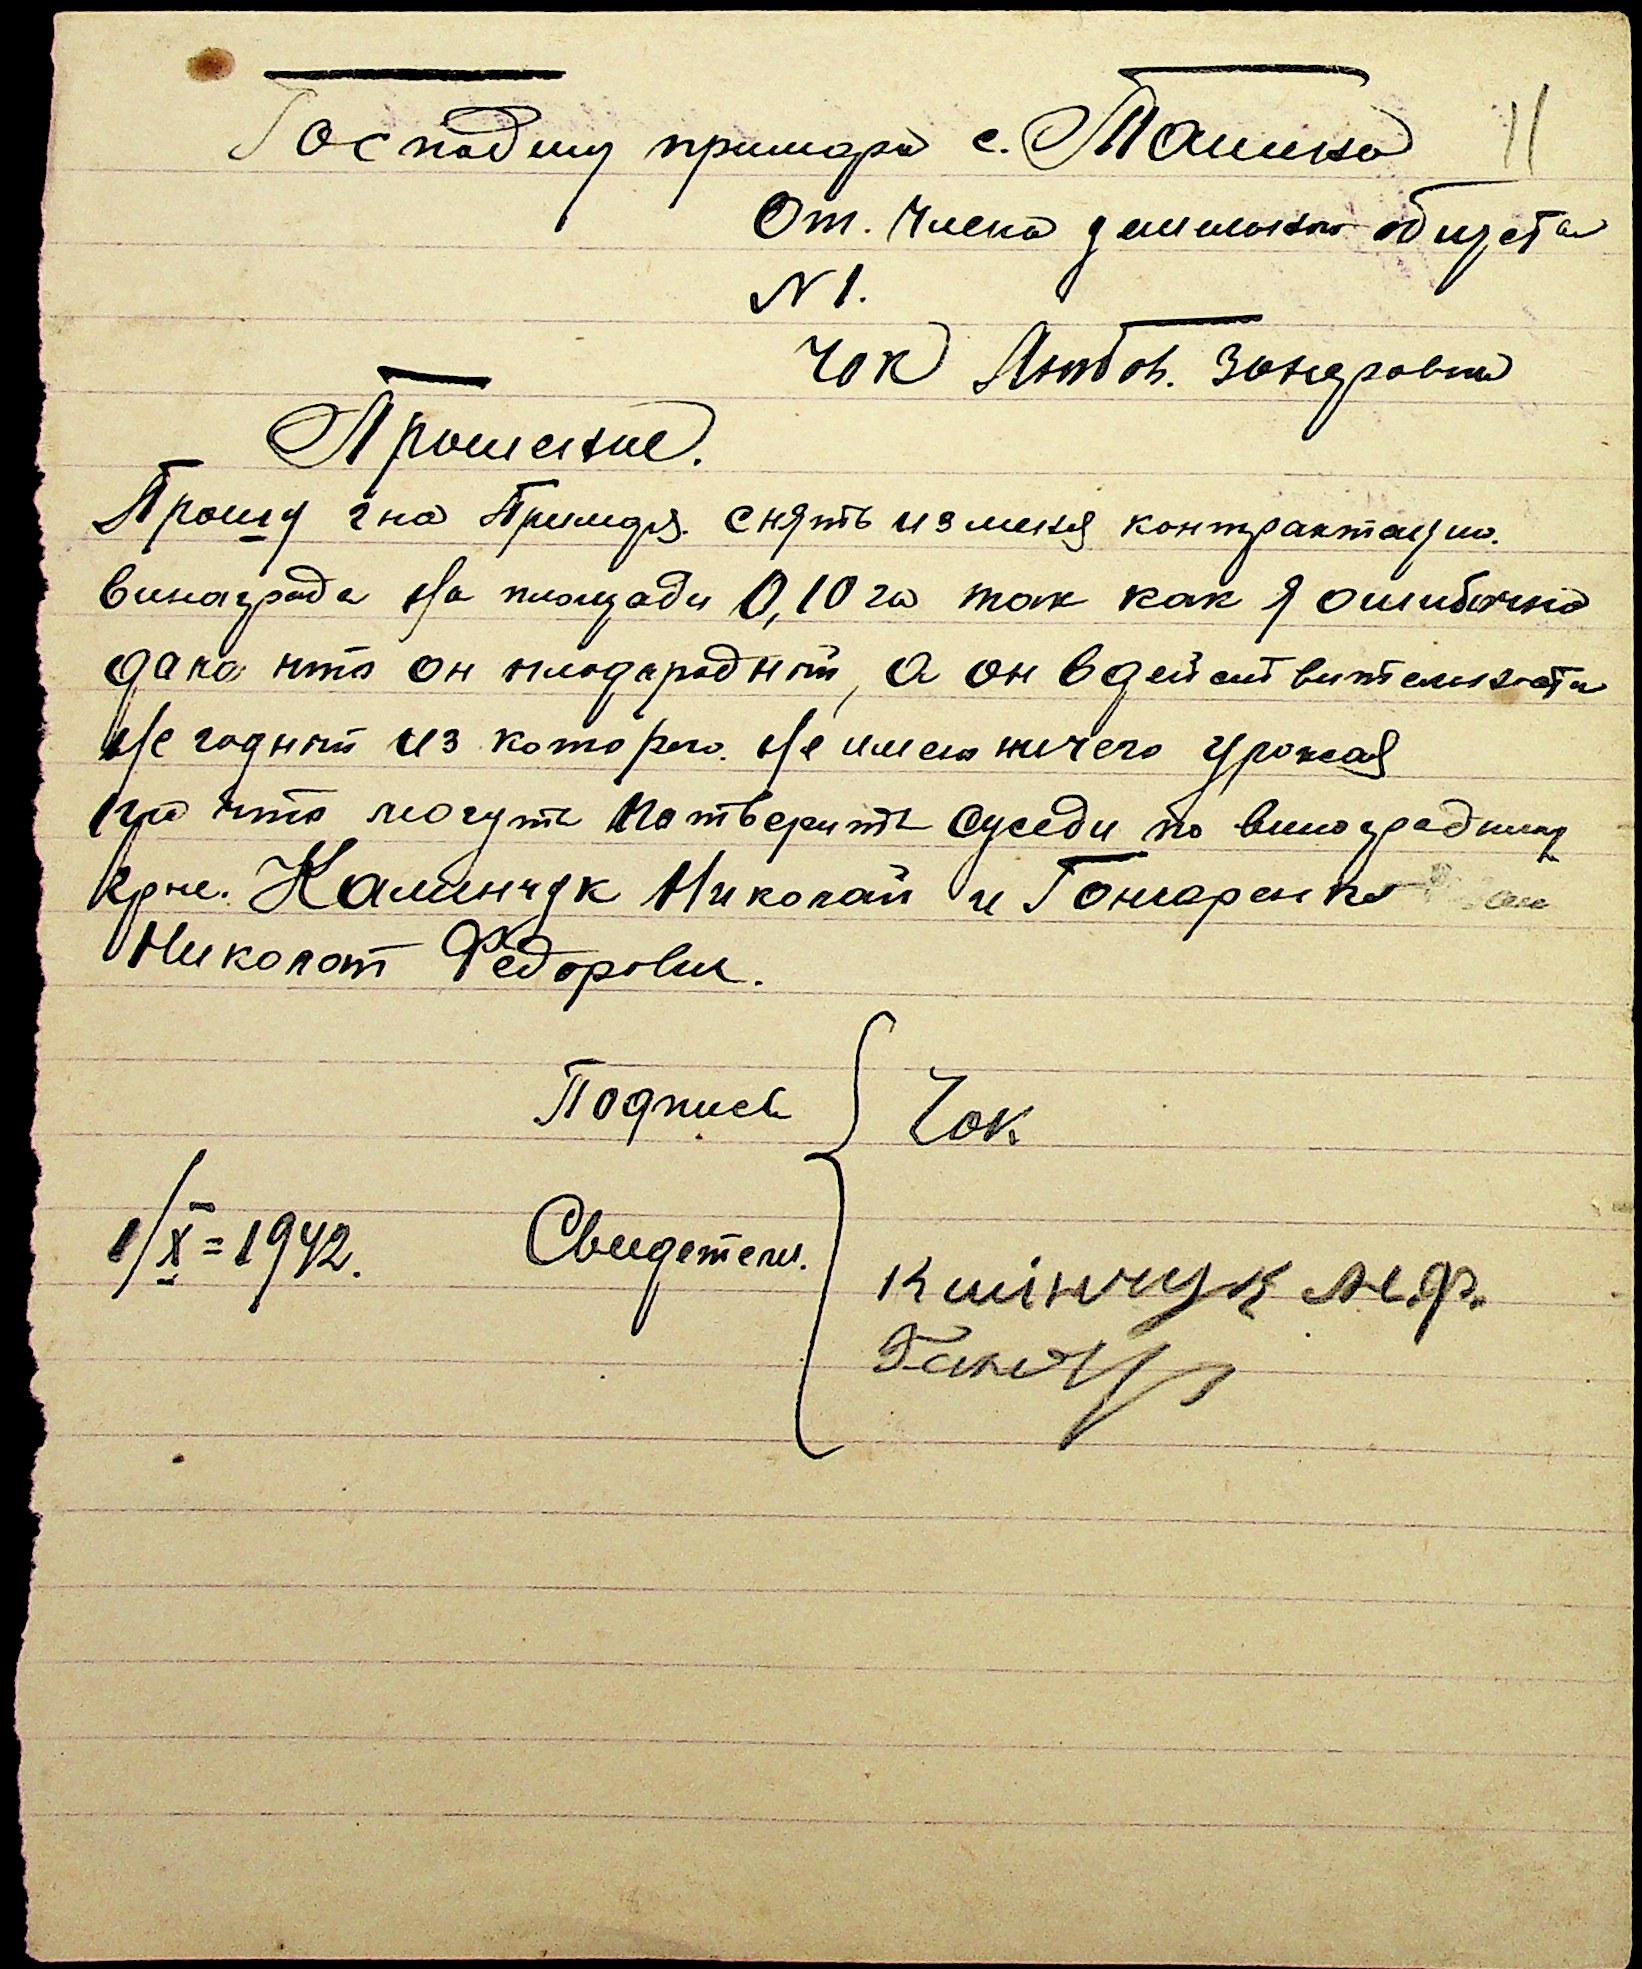 Господину примарю с. Ташино
11
От. члена земельного общества
N 1.
Чок Любов. Зондровна
Прошение.
Прошу г на Примаря. снять из меня контрактацию.
винограда На площади 0,10 га так как я ошибочно
дала что он плодородный, а он в действительности
Не годный из которого. Не имею ничего урожая
что могуть потверить суседи по винограднику
грж. Калинчук Николай и Гончаренко
Николат Федорович.
Подпись Чок
1/X = 1942.
Свидетели.
Калінчук М.Ф.